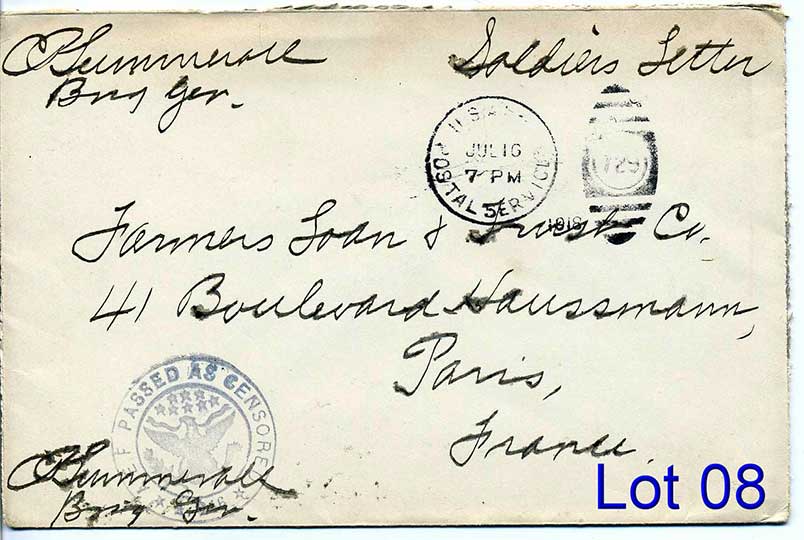 CPSummerall
Brig Gen.
Soldiers Letter
U.S. POSTAL SERVICE
JUL 16
7 PM
1918
729
Farmers Loan & Trust Co.
41 Boulevard Haussmann,
Paris,
France.
AEF PASSED AS CENSORED
CPSummerall
Brig Gen.
Lot 08